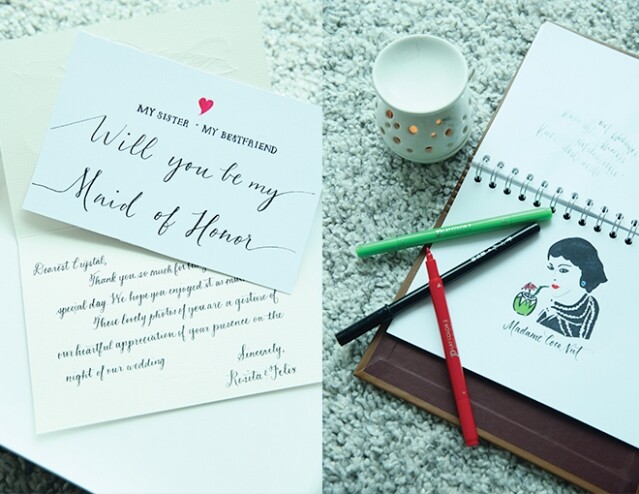 MY SISTER - MY BESTFRIEND
Will you be my
Maid of Honor
Dearest Crystal,
Thank you so much for
special day. We hope you enjoyed it as
These lovely photos of you are a gesture of
our heartful appreciation of your presence on the
night of our wedding
Sincerely,
Rosita & Felix
Madame Coco